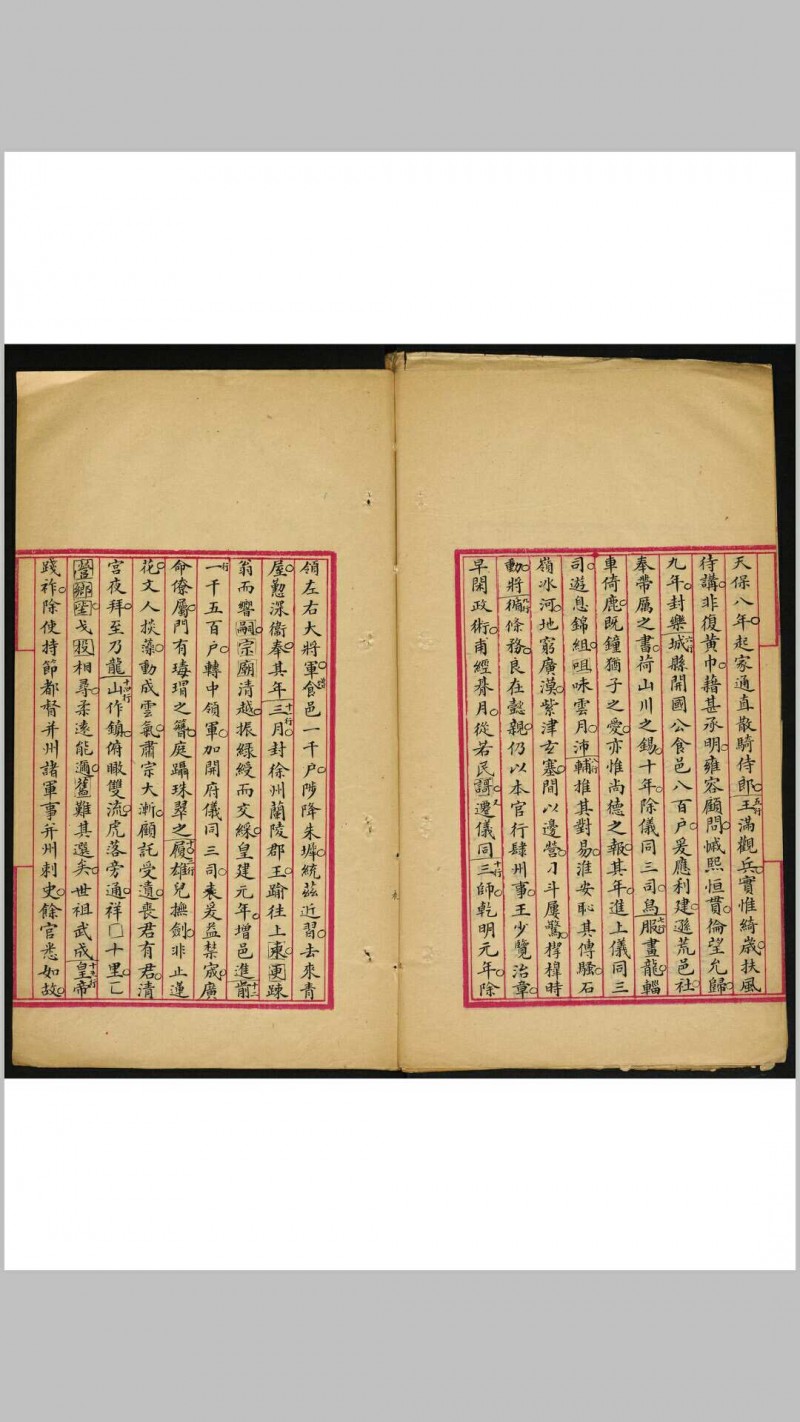 天保八年起家通直散騎侍郎王五行滿觀兵實惟綺歲扶風
待講非復黃巾藉甚承明雍容顧問憾熙恒貫倫望允歸
九年封樂城六行縣開國公食邑八百戶爰應利建遜荒邑社
奉帶厲之書荷山川之錫十年除儀同三司鳥七行服畫龍輜
車倚鹿既鐘猶子之愛亦惟尚德之報其年進上儀同三
司遊息錦組咀味雲月沛八行輔推其對易淮安恥其傳騷石
嶺冰河地窮廣漠紫津玄塞間以邊營刁斗屢驚桴楫時
動將九行徧條務良在懿親仍以本官行肆州事王少覽治章
早閑政術甫經朞月從若民謌遷儀同三十行師乾明元年除
領左右大將軍食邑一千戶陟降朱墀統茲近習去來青
屋懃深衞奉其年三十一行月封徐州蘭陵郡王踰往上東更踈
翁而響嗣宗廟清越振綠綬而交綵皇建元年增邑進前十二
行一千五百戶轉中領軍加開府儀同三司爰益禁宬廣
命僚屬門有瑇瑁之簪庭躡珠翠之履十三行雄兒撫劍非止蓮
花文人掞藻動成雲氣肅宗大漸顧託受遺喪君有君清
宮夜拜至乃龍十四行山作鎮俯瞰雙流虎落旁通祥□十里
營鄉戈役相尋柔遠能邇舊難其選矣世祖武成皇十五行帝
踐祚除使持節都督并州諸軍事并州刺史餘官悉如故